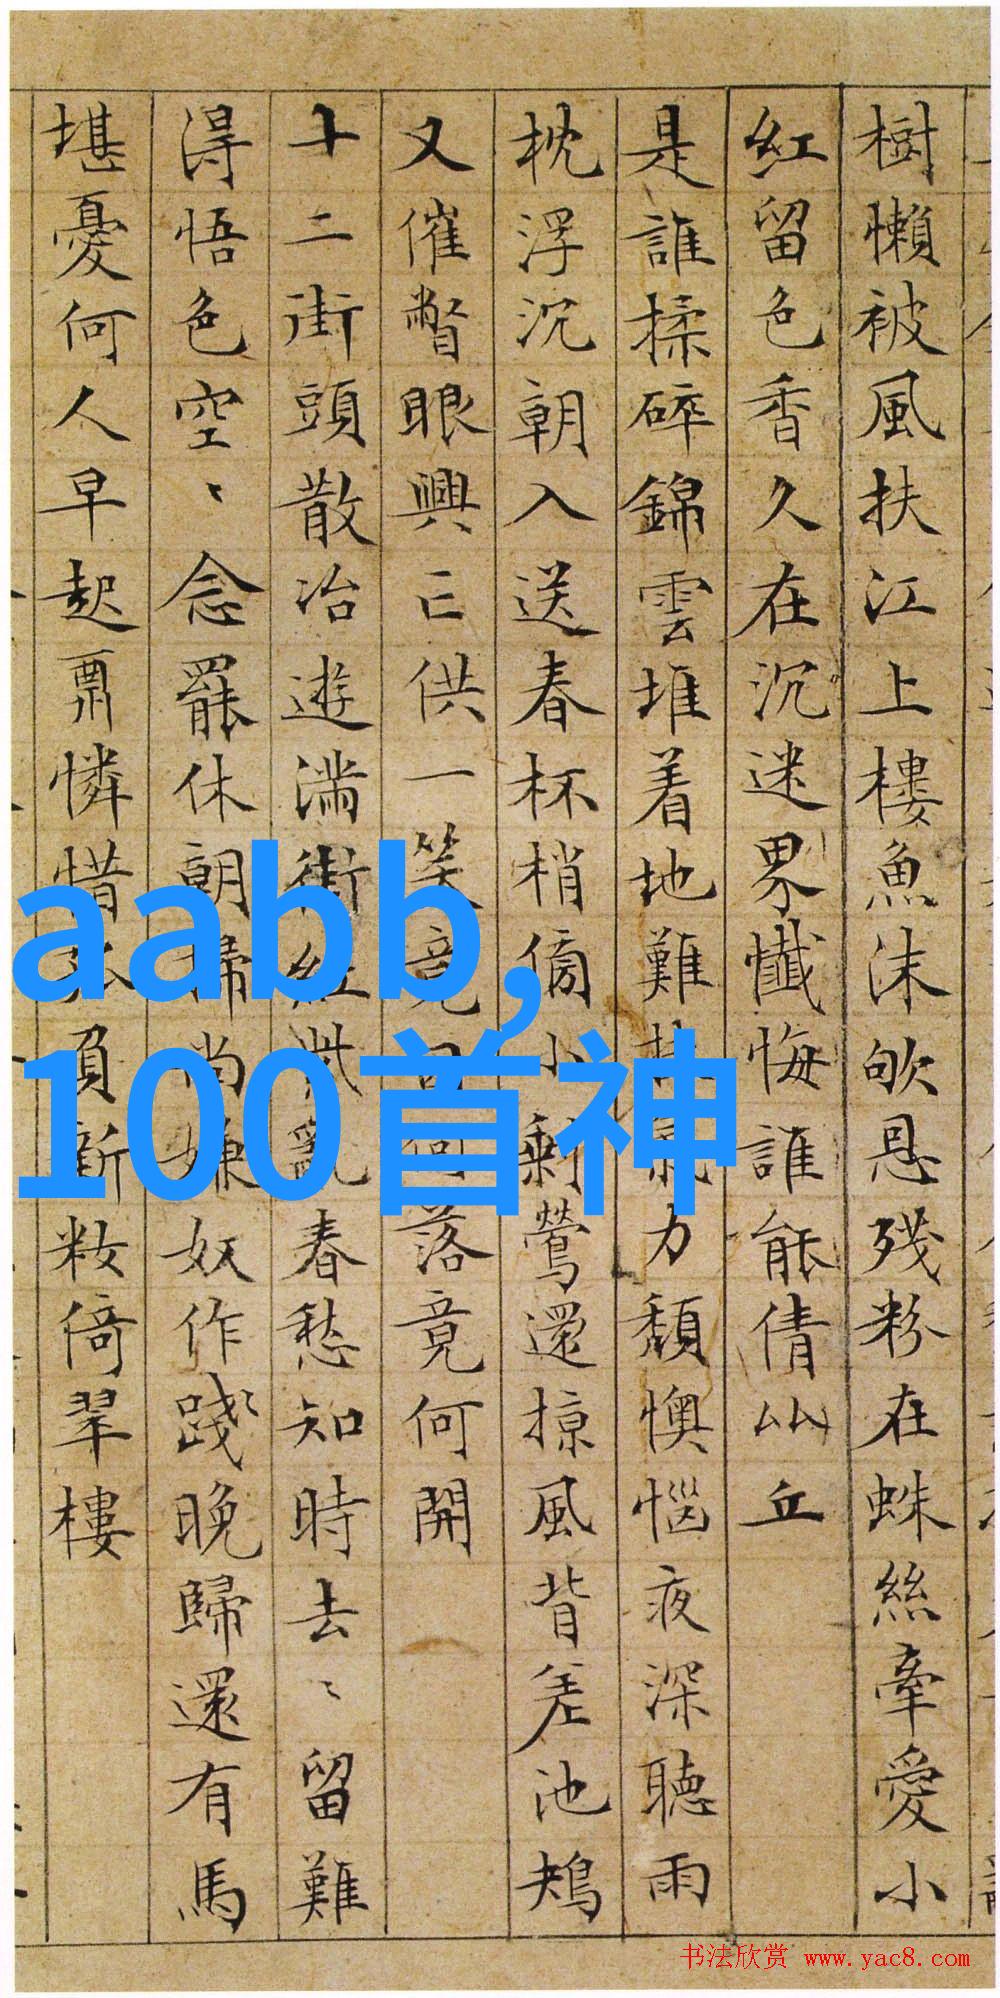 樹懶被風扶江上樓魚沫欨恩殘粉在蛛絲牽愛小
紅留色香久在沉迷界懺悔誰能倩比丘
是誰揉碎錦雲堆着地難扶氣力頹懊惱夜深聽雨
枕浮沉朝入送春杯梢傍小剩鶯還掠風背差池鳺
又催瞥眼興亡供一笑竟落竟何開
十二街頭散冶遊滿街紅紫亂春愁知時去〻留難
得悟色空〻念罷休朝掃尚嫌奴作踐晚歸還有馬
堪憂何人早起憐惜孤負新妝倚翠樓
aabb,
100首神
书法欣赏 www.yac8.com